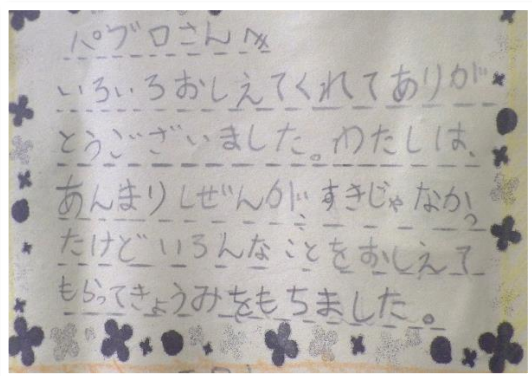 パブロさんへ
いろいろおしえてくれてありが
とうございました。わたしは、
あんまりしぜんが、すきじゃなかっ
たけどいろんなことをおしえて
もらってきょうみをもちました。